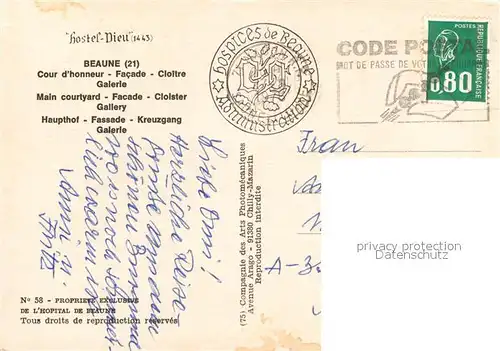 "Hostel-Dieu" (1443)
BEAUNE (21)
Cour d'honneur - Façade - Cloître
Galerie
Main courtyard - Facade - Cloister
Gallery
Haupthof - Fassade - Kreuzgang
Galerie
N° 58 - PROPRIÉTÉ EXCLUSIVE
DE L'HOPITAL DE BEAUNE
Tous droits de reproduction réservés
(75) Compagnie des Arts Photomécaniques
Avenue Arago - 91380 Chilly-Mazarin
Reproduction interdite
Hospices de Beaune
Administration
CODE POSTAL
MOT DE PASSE DE VOTRE
POSTES
0,80
RÉPUBLIQUE FRANÇAISE
Liebe Omi!
Herzliche Reise-
grüße
schönen Burgund
noch
lich warm ist.
Anni u.
Fritz
Frau
A-3
privacy protection
Datenschutz